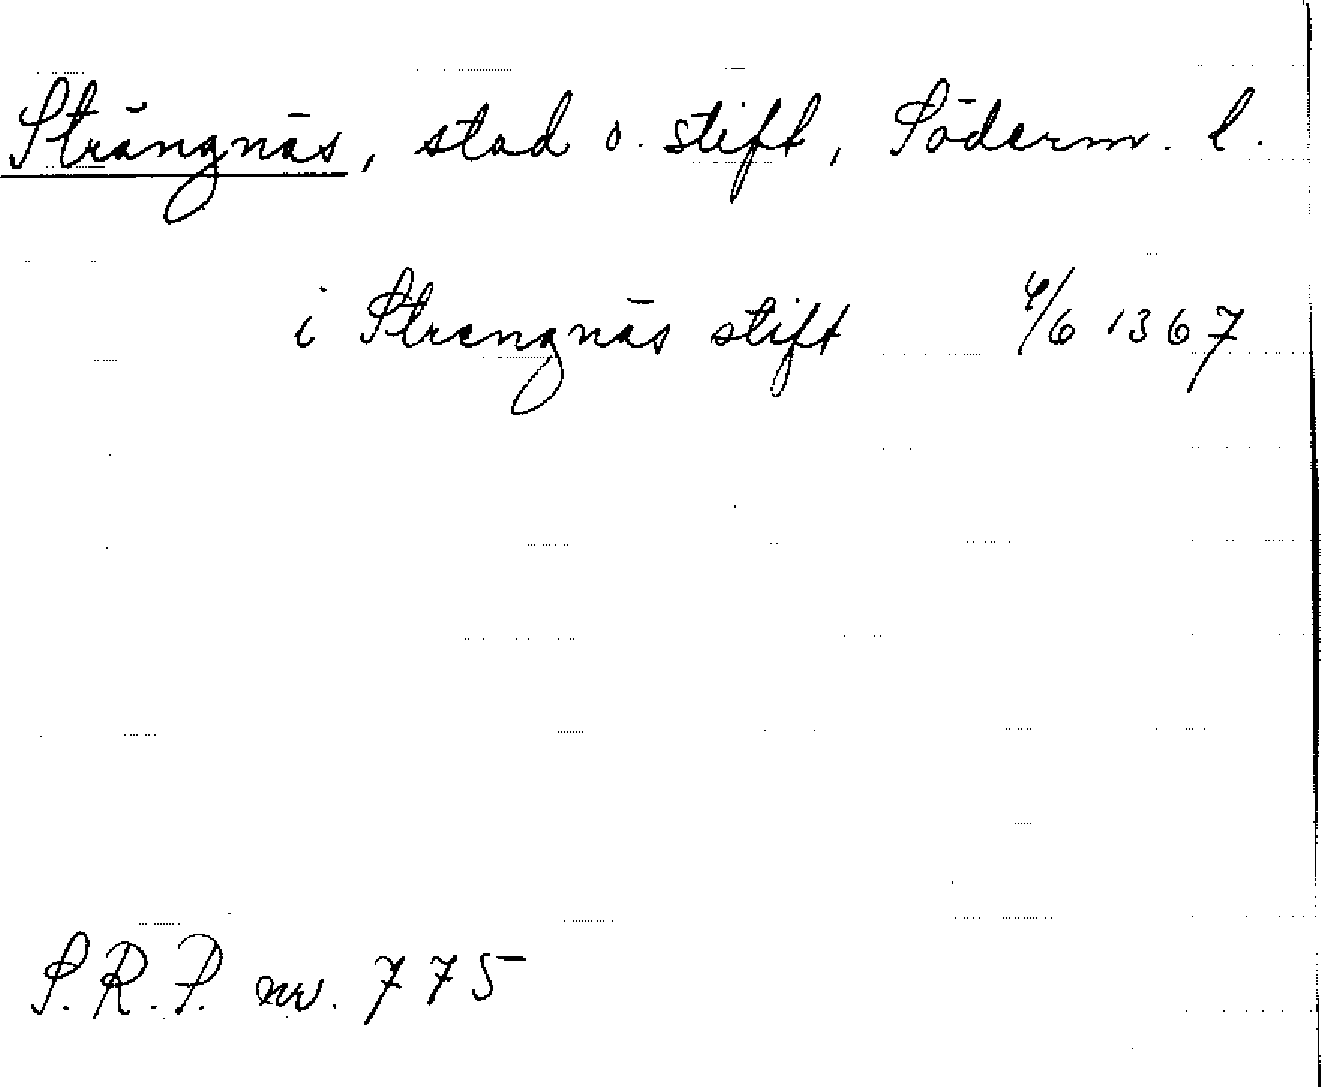 Strängnäs, stad o. stift, Söderm. l.
i Strengnäs stift 4/6 1367
S.R.P. nr. 775